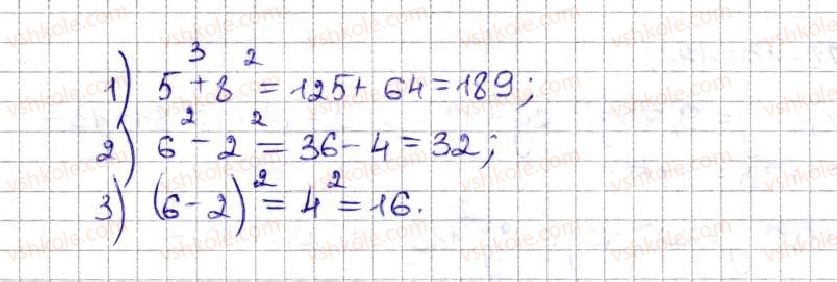 1) 5³ + 8² = 125 + 64 = 189;
2) 6² - 2² = 36 - 4 = 32;
3) (6 - 2)² = 4² = 16.
vshkole.com